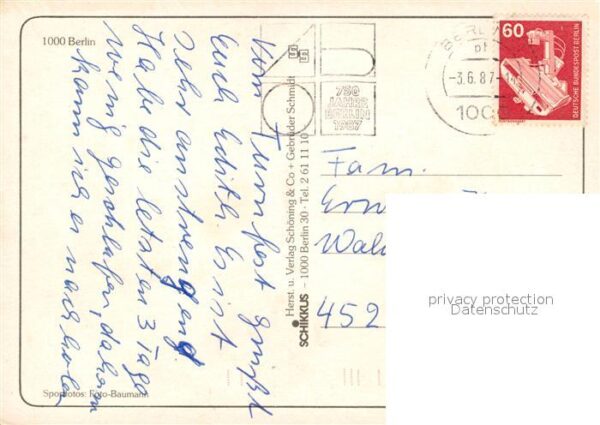 1000 Berlin
Vom Turnfest grüßt
Euch Edith. Es ist
sehr anstrengend.
Habe die letzten 3 Tage
wenig geschlafen, daheim
kann ich es nachholen
Sportfotos: Foto-Baumann
Herst. u. Verlag Schöning & Co + Gebrüder Schmidt
SCHIKKUS – 1000 Berlin 30 · Tel. 2 61 11 10
750
JAHRE
BERLIN
1987
BERLIN
-3.6.87
100
60
DEUTSCHE BUNDESPOST BERLIN
Fam.
Ern
Wal
452
privacy protection
Datenschutz